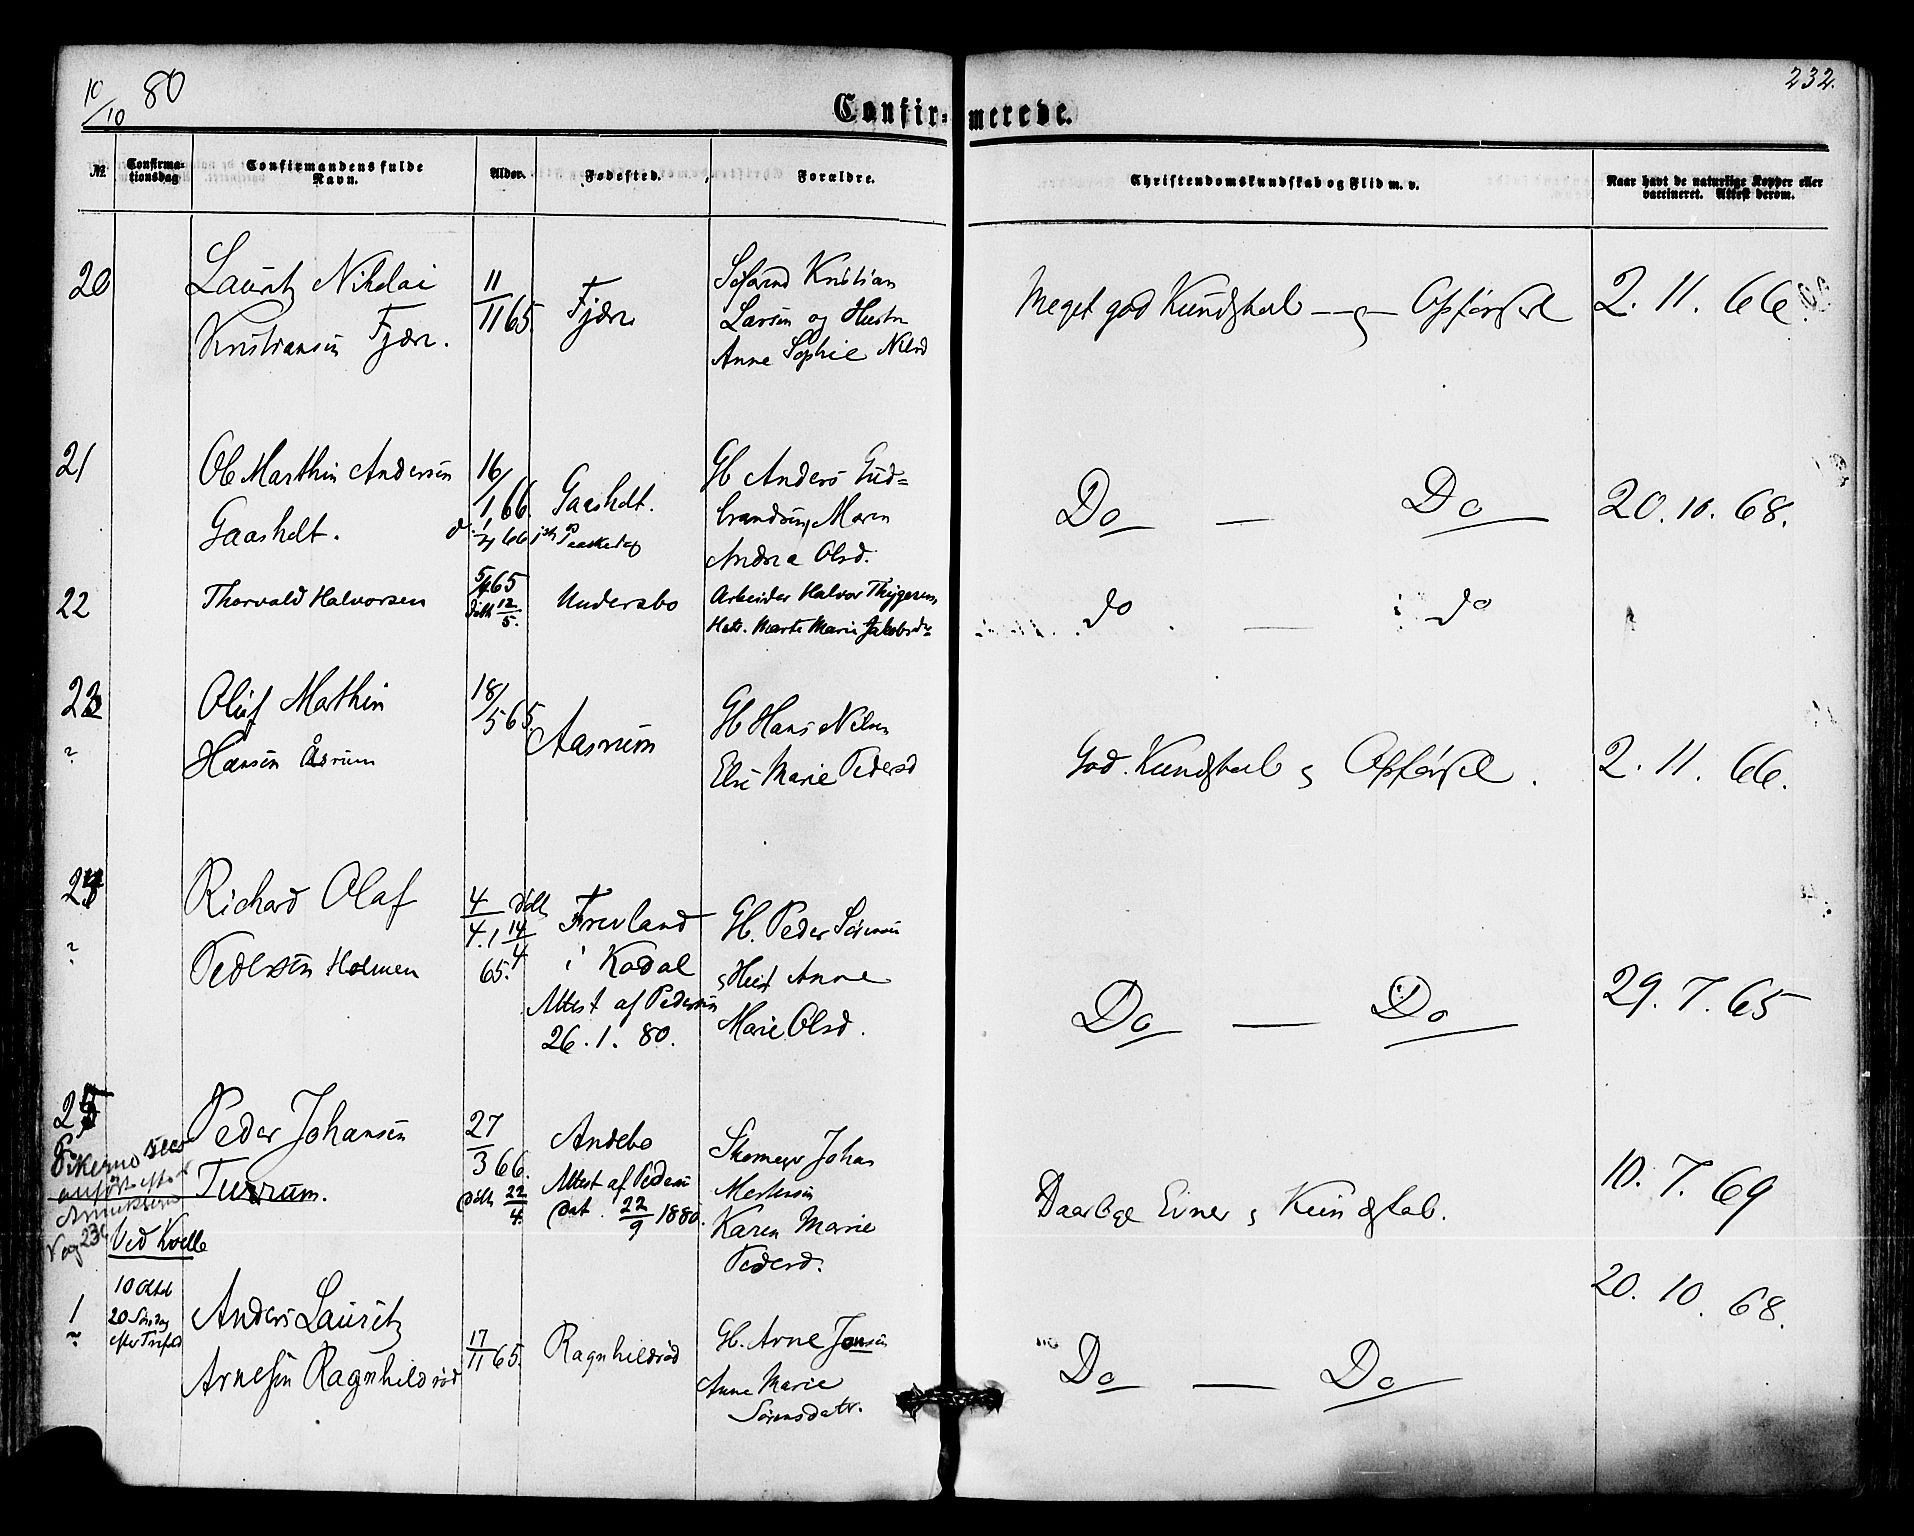 10/10 80
232.
Confirmerede.
№
Confirmationsdag
Confirmandens fulde Navn.
Alder.
Fødested.
Forældre.
Christendomskundskab og Flid m. v.
Naar havt de naturlige Kopper eller vaccineret. Attest derom.
20
Lauritz Nikolai
Kristiansen Fjære.
11/11 65.
Fjære
Kristian
Larsen og Hustru
Anne Sophie Nilsd
Meget god Kundskab — og — Opførsel
2. 11. 66.
21
Ole Marthin Andersen
Gaasholt.
16/1 66.
Gaasholt.
Gb Anders Gud=
brandsen, Maren
Andrea Olsd.
Do — Do
20. 10. 68.
22
Thorvald Halvorsen
5/4 65
døbt 12/5.
Undersbo
Arbeider Halvor Thygesen,
Hstr. Marte Marie Jakobsd.
do — do
23
Oluf Mathin
Hansen Åsrum
18/5 65.
Aasrum
Gb Hans Nilsen
Else Marie Pedersd
God Kundskab og Opførsel.
2. 11. 66.
24
Richard Olaf
Pedersen Holmen
4/4. døbt 14/4
65.
Freuland
i Kodal
Attest af Pedersen
26. 1. 80.
Gb. Peder Sørensen
og Hust Anne
Marie Olsd.
Do — Do
29. 7. 65
25
Peder Johansen
Turrum.
27/3 66.
døbt 22/4.
Andebo
Attest af Pedersen
Dat. 22/9 1880.
Skomager Johan
Karen Marie
Pedersd.
Daarlige Evner og Kundskab.
10. 7. 69
Pikerne
anført efter
Pag 234
Ved Kvelle
1
10 Octob
20 Søndag
efter Trefold
Anders Lauritz
Arnesen Ragnhildrød
17/11 65.
Ragnhildrød
Gb. Arne Jonsen
Anne Marie
Sørensdatr.
Do — Do
20. 10. 68.